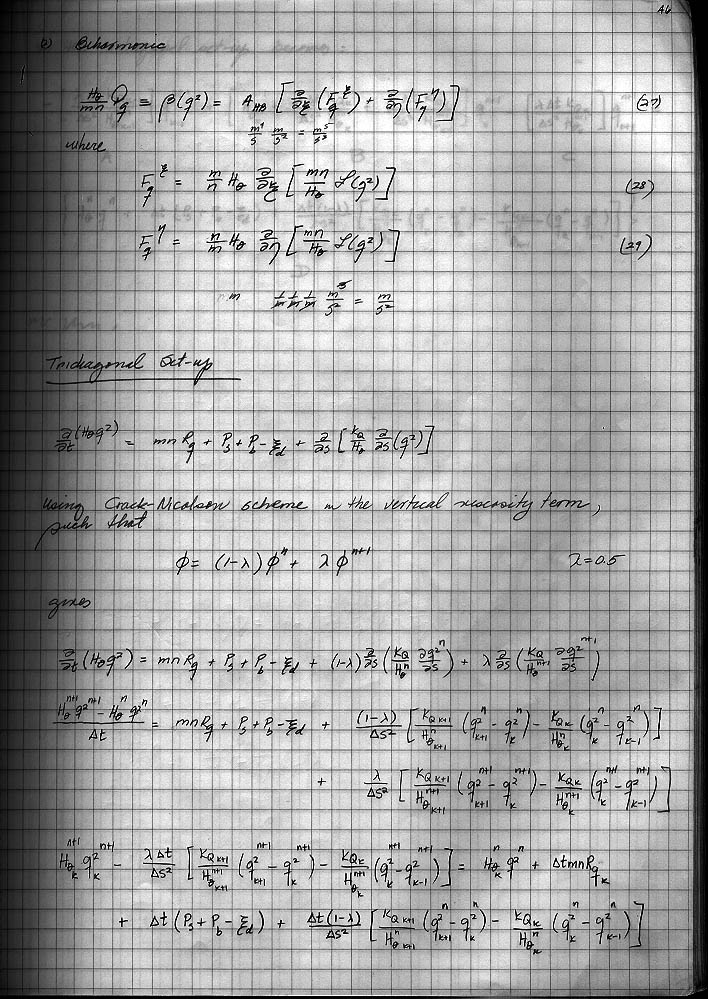 A6
b) Biharmonic
Hθ/mn Q_q ≡ β(q²) = A_HB [ ∂/∂ξ (F_q^ξ) + ∂/∂η (F_q^η) ] (27)
m⁴/s m/s² = m⁵/s³
where
F_q^ξ = m/n Hθ ∂/∂ξ [ mn/Hθ ℒ(q²) ] (28)
F_q^η = n/m Hθ ∂/∂η [ mn/Hθ ℒ(q²) ] (29)
m 1/m 1/m 1/m m³/s² = m/s²
Tridiagonal Set-up
∂/∂t (Hθq²) = mn R_q + P_s + P_b - ξ_d + ∂/∂s [ K_Q/Hθ ∂/∂s (q²) ]
Using Crack-Nicolson scheme in the vertical viscosity term,
such that
φ = (1-λ) φⁿ + λ φⁿ⁺¹ λ = 0.5
gives
∂/∂t (Hθq²) = mn R_q + P_s + P_b - ξ_d + (1-λ) ∂/∂s ( K_Q/Hθⁿ ∂q²ⁿ/∂s ) + λ ∂/∂s ( K_Q/Hθⁿ⁺¹ ∂q²ⁿ⁺¹/∂s )
(Hθⁿ⁺¹ q²ⁿ⁺¹ - Hθⁿ q²ⁿ)/Δt = mn R_q + P_s + P_b - ξ_d + (1-λ)/Δs² [ K_Qk+1/Hθⁿ_k+1 (q²ⁿ_k+1 - q²ⁿ_k) - K_Qk/Hθⁿ_k (q²ⁿ_k - q²ⁿ_k-1) ]
+ λ/Δs² [ K_Qk+1/Hθⁿ⁺¹_k+1 (q²ⁿ⁺¹_k+1 - q²ⁿ⁺¹_k) - K_Qk/Hθⁿ⁺¹_k (q²ⁿ⁺¹_k - q²ⁿ⁺¹_k-1) ]
Hθⁿ⁺¹_k q²ⁿ⁺¹_k - λΔt/Δs² [ K_Qk+1/Hθⁿ⁺¹_k+1 (q²ⁿ⁺¹_k+1 - q²ⁿ⁺¹_k) - K_Qk/Hθⁿ⁺¹_k (q²ⁿ⁺¹_k - q²ⁿ⁺¹_k-1) ] = Hθⁿ_k q²ⁿ_k + Δt mn R_qk
+ Δt (P_s + P_b - ξ_d) + Δt(1-λ)/Δs² [ K_Qk+1/Hθⁿ_k+1 (q²ⁿ_k+1 - q²ⁿ_k) - K_Qk/Hθⁿ_k (q²ⁿ_k - q²ⁿ_k-1) ]